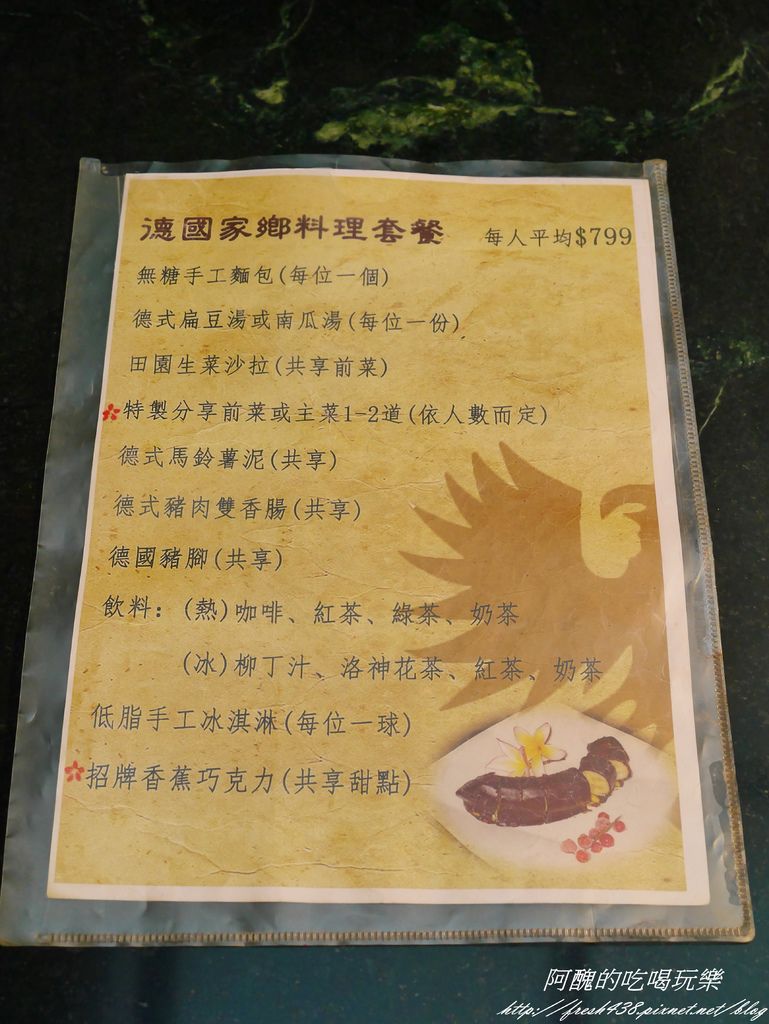 德國家鄉料理套餐 每人平均$799
無糖手工麵包(每位一個)
德式扁豆湯或南瓜湯(每位一份)
田園生菜沙拉(共享前菜)
特製分享前菜或主菜1-2道(依人數而定)
德式馬鈴薯泥(共享)
德式豬肉雙香腸(共享)
德國豬腳(共享)
飲料：(熱)咖啡、紅茶、綠茶、奶茶
(冰)柳丁汁、洛神花茶、紅茶、奶茶
低脂手工冰淇淋(每位一球)
招牌香蕉巧克力(共享甜點)
阿醜的吃喝玩樂
http://fresh438.pixnet.net/blog